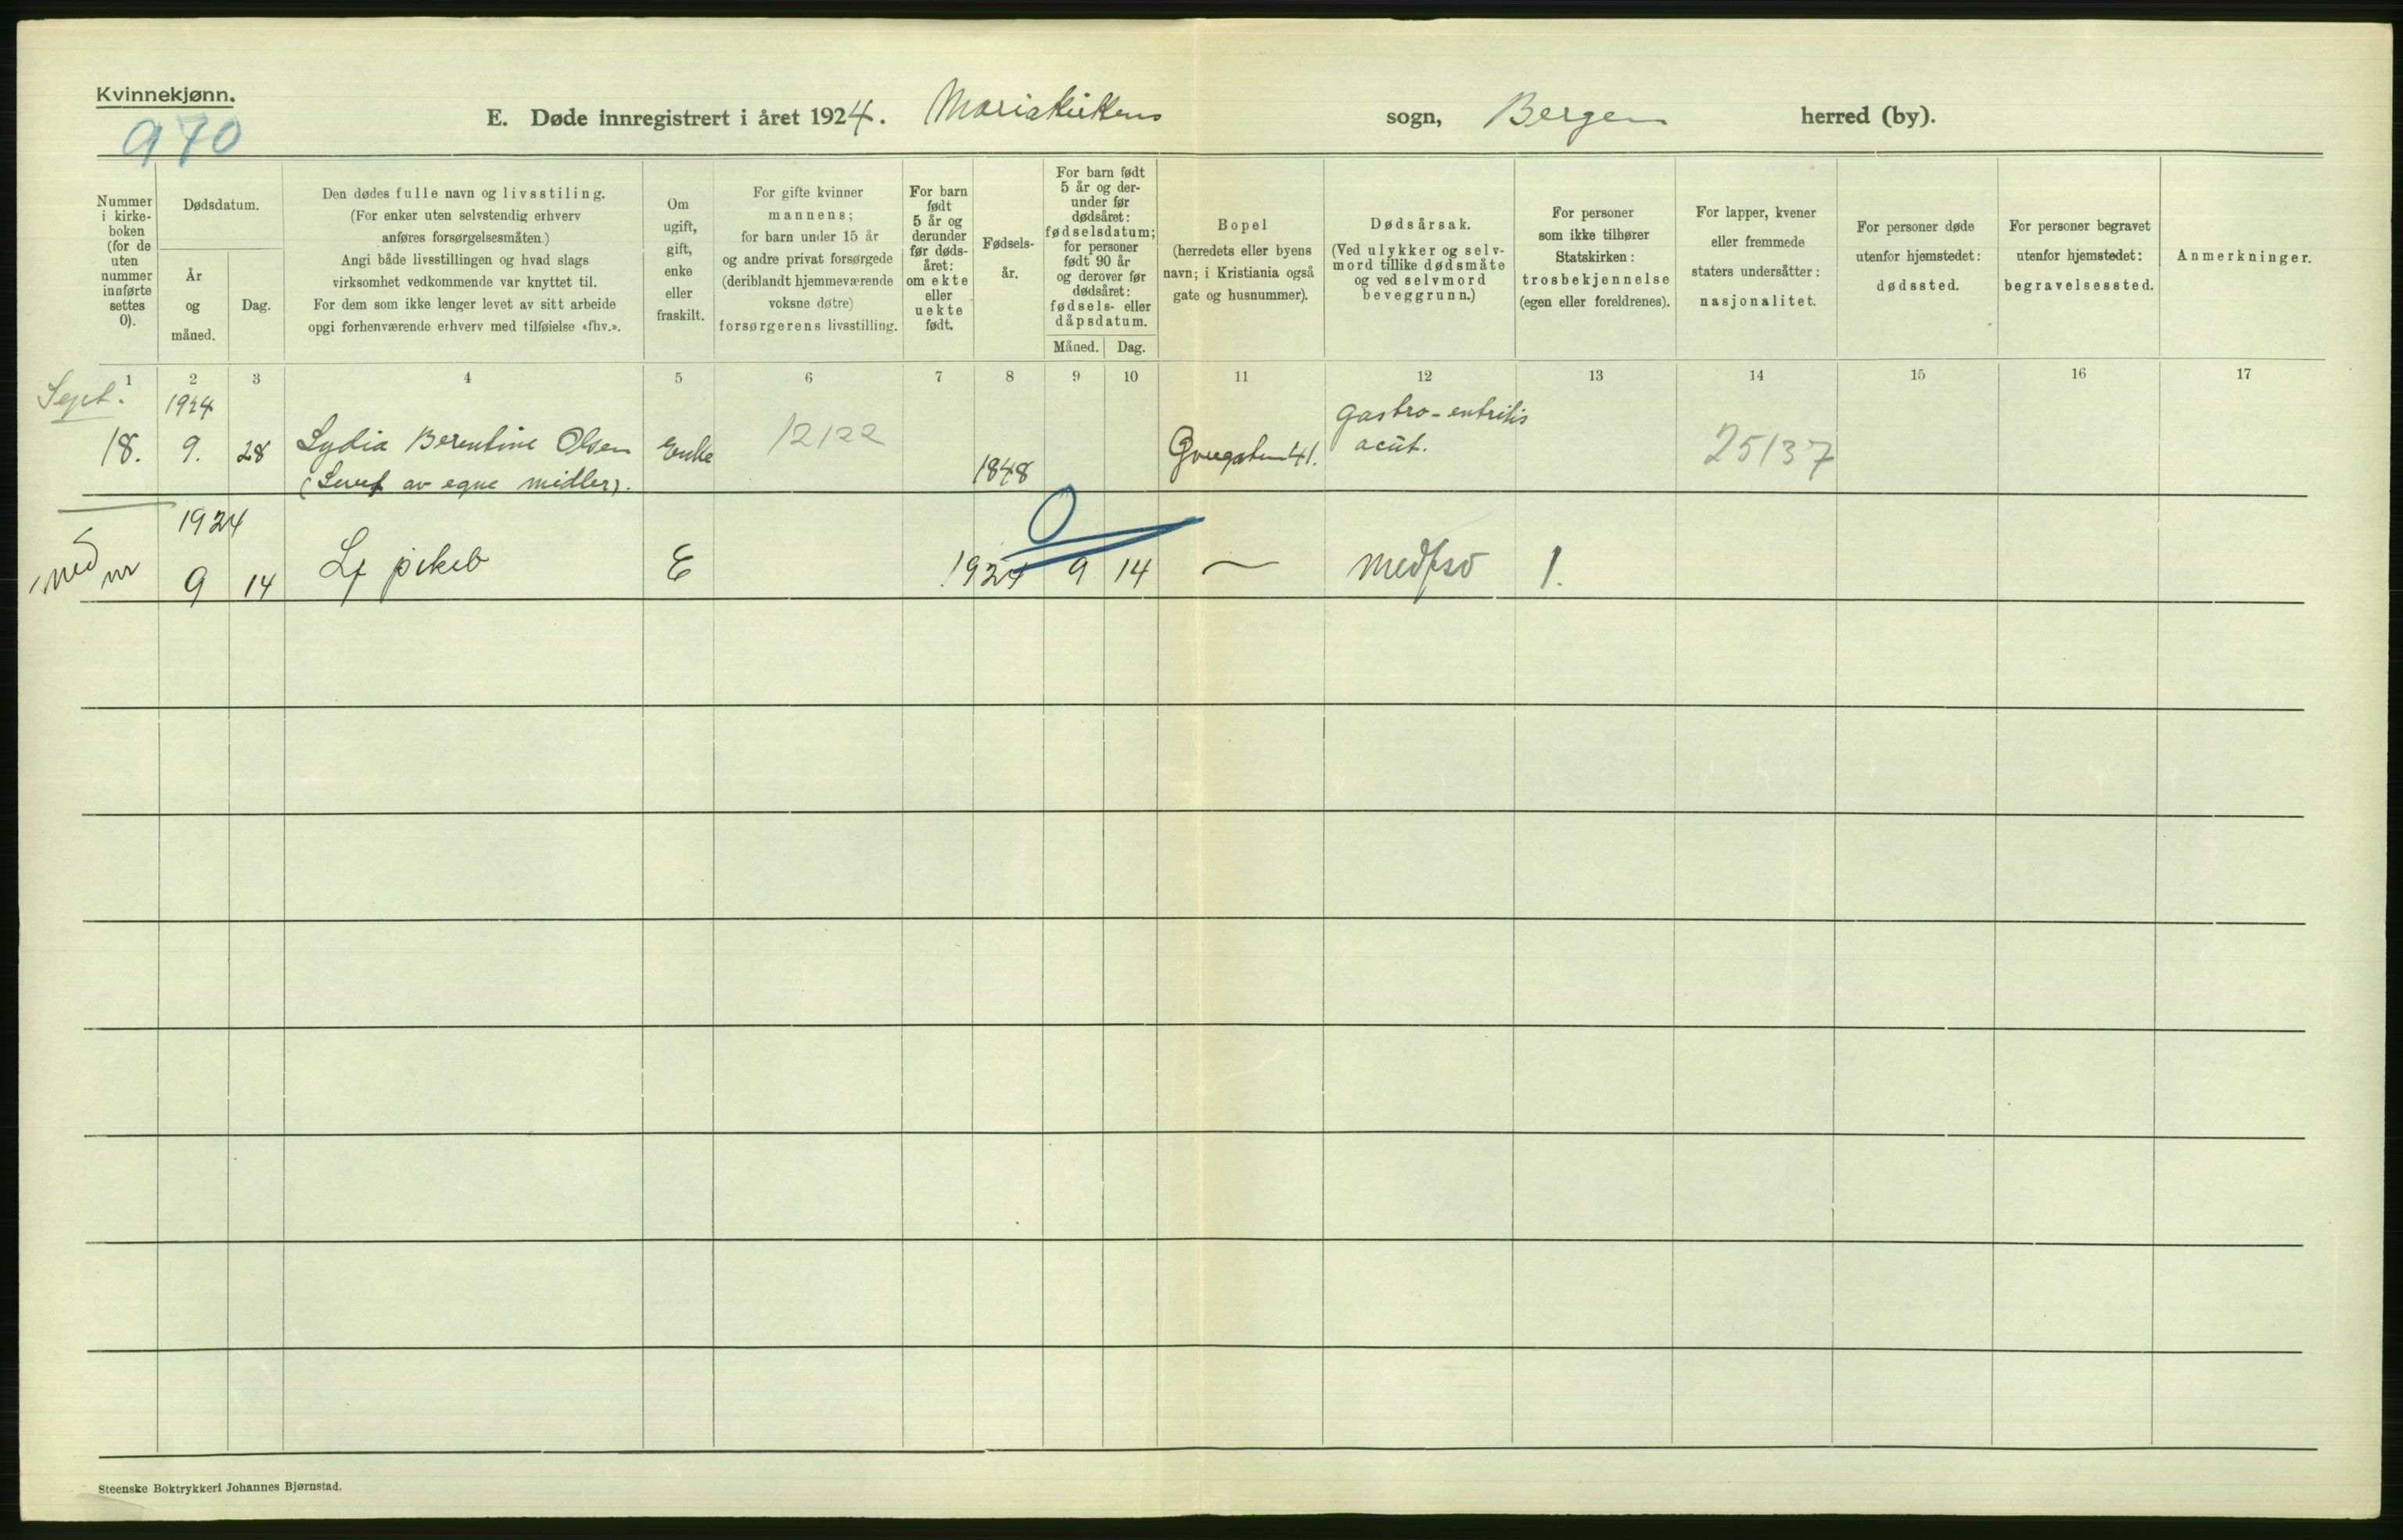 Kvinnekjønn.
970
E. Døde innregistrert i året 1924. Mariakirkens sogn, Bergen herred (by).
Nummer
i kirke-
boken
(for de
uten
nummer
innførte
settes
0).
Dødsdatum.
År
og
måned.
Dag.
Den dødes fulle navn og livsstiling.
(For enker uten selvstendig erhverv
anføres forsørgelsesmåten.)
Angi både livsstillingen og hvad slags
virksomhet vedkommende var knyttet til.
For dem som ikke lenger levet av sitt arbeide
opgi forhenværende erhverv med tilføielse «fhv.».
Om
ugift,
gift,
enke
eller
fraskilt.
For gifte kvinner
mannens;
for barn under 15 år
og andre privat forsørgede
(deriblandt hjemmeværende
voksne døtre)
forsørgerens livsstilling.
For barn
født
5 år og
derunder
før døds-
året:
om ekte
eller
uekte
født.
Fødsels-
år.
For barn født
5 år og der-
under før
dødsåret:
fødselsdatum;
for personer
født 90 år
og derover før
dødsåret:
fødsels- eller
dåpsdatum.
Måned. Dag.
Bopel
(herredets eller byens
navn; i Kristiania også
gate og husnummer).
Dødsårsak.
(Ved ulykker og selv-
mord tillike dødsmåte
og ved selvmord
beveggrunn.)
For personer
som ikke tilhører
Statskirken:
trosbekjennelse
(egen eller foreldrenes).
For lapper, kvener
eller fremmede
staters undersåtter:
nasjonalitet.
For personer døde
utenfor hjemstedet:
dødssted.
For personer begravet
utenfor hjemstedet:
begravelsessted.
Anmerkninger.
1 2 3 4 5 6 7 8 9 10 11 12 13 14 15 16 17
Sept.
1924
18. 9. 28 Lydia Berentine Olsen Enke 12122 1848 41. gastro-entritis
acut. 25137
av egne midler).
1924
nr 9 14 E 1924 9 14 — 1.
0
Steenske Boktrykkeri Johannes Bjørnstad.